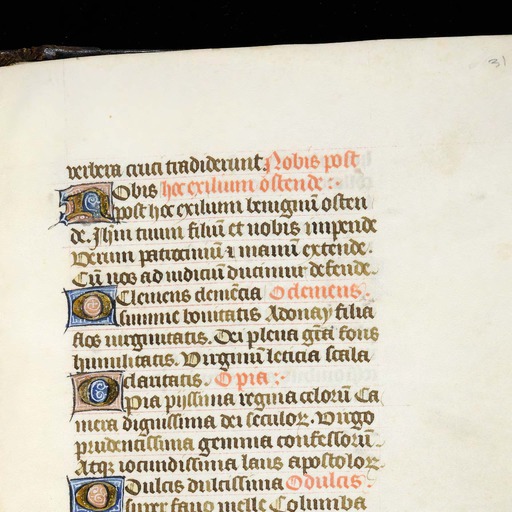 31
verbera cruci tradiderunt. Nobis post
Nobis hoc exilium ostende:
post hoc exilium benignū osten
de. Jhm tuum filiū et nobis impende
Verum patrociniū ⁊ manū extende.
Cū nos ad iudiciū ducimur defende.
O Clemens clemēcia O clemens:
summe bonitatis Adonay filia
flos virginitatis. Dei plena grā fons
humilitatis. Virginū leticia scala
claritatis. O pia:
O Pia pyssima regina celorū Ca
mera dignissima dei seculoꝝ. Virgo
prudentissima gemma confessorū.
Atqꝫ iocundissima laus apostoloꝝ.
O Dulcis dulcissima O dulcis:
super fauo melle Columba